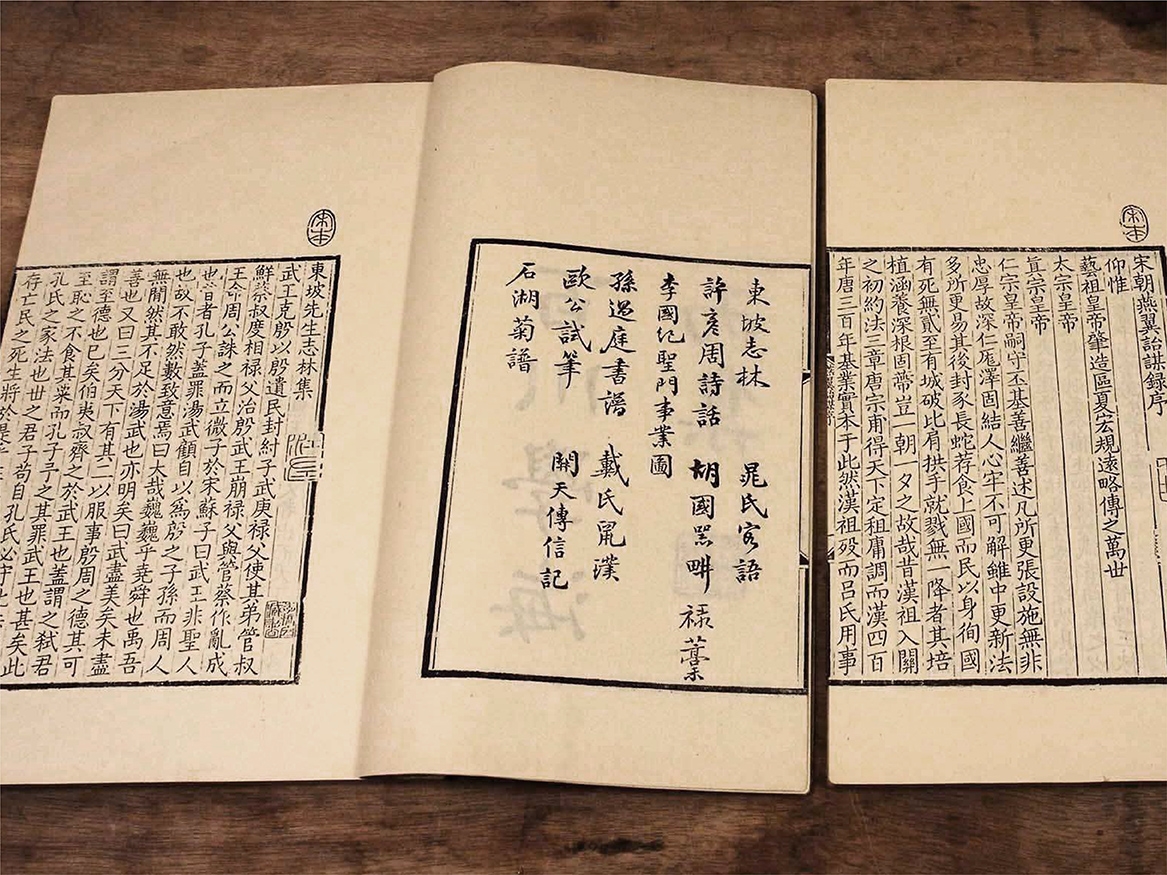 宋朝燕翼詒謀錄序
仰惟
藝祖皇帝肇造區夏宏規遠略傳之萬世
太宗皇帝
眞宗皇帝
仁宗皇帝嗣守丕基善繼善述凡所更張設施無非
忠厚故深仁厖澤固結人心牢不可解雖中更新法
多所更易其後封豕長蛇荐食上國而民以身徇國
有死無貳至有城破比肩拱手就戮無一降者其培
植涵養深根固蔕豈一朝一夕之故哉昔漢祖入關
之初約法三章唐宗甫得天下定租庸調而漢四百
年唐三百年基業實本于此然漢祖歿而呂氏用事
宋本
東坡志林 晁氏客語
許彥周詩話 胡國器耕祿藁
李國紀聖門事業圖
孫過庭書譜 戴氏鼠璞
歐公試筆 開天傳信記
石湖菊譜
宋本
東坡先生志林集
武王克殷以殷遺民封紂子武庚祿父使其弟管叔
鮮蔡叔度相祿父治殷武王崩祿父與管蔡作亂成
王命周公誅之而立微子於宋蘇子曰武王非聖人
也昔者孔子蓋罪湯武顧自以爲殷之子孫而周人
也故不敢然數致意焉曰大哉巍巍乎堯舜也禹吾
無閒然其不足於湯武也亦明矣曰武盡美矣未盡
善也又曰三分天下有其二以服事殷周之德其可
謂至德也已矣伯夷叔齊之於武王也蓋謂之弒君
至恥之不食其粟而孔子予之其罪武王也甚矣此
孔氏之家法也世之君子苟自孔氏必守此
存亡民之死生將於是乎